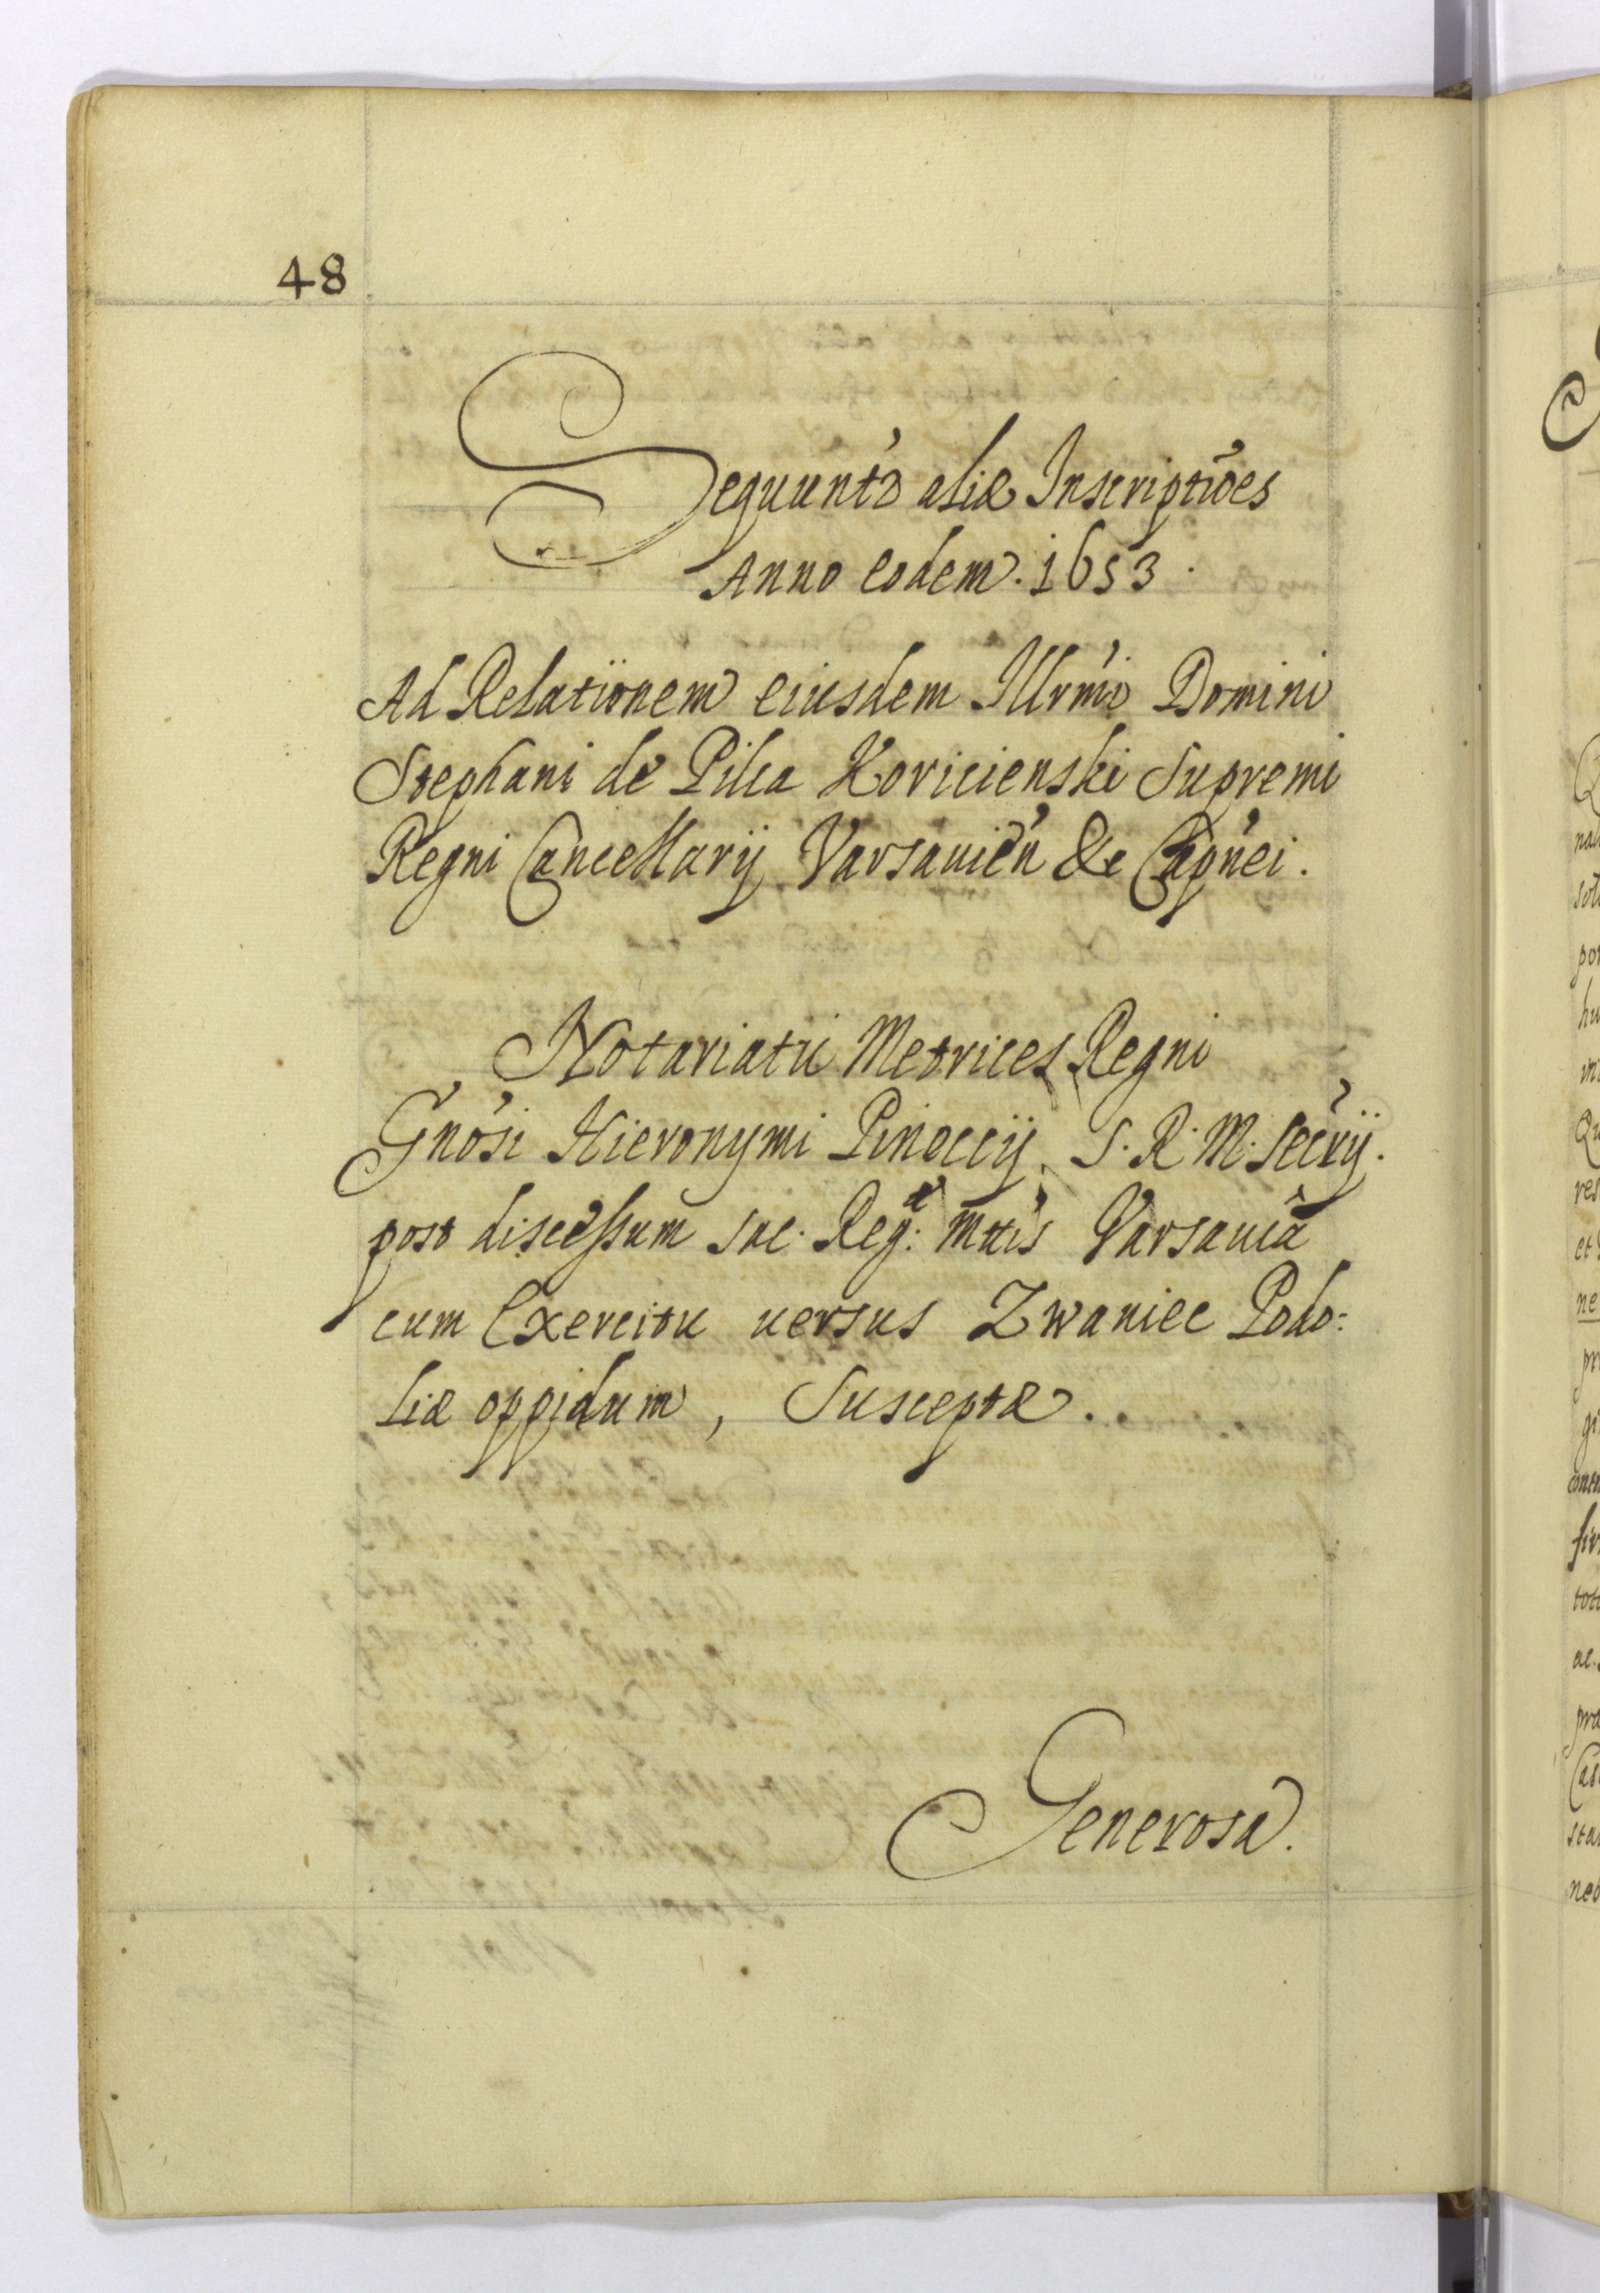 48
Sequunt'r aliæ Inscriptiões
Anno eodem. 1653.
Ad Relationem eiusdem Illrmi Domini
Stephani de Pilca Koricienski Supremi
Regni Cancellarij Varsauień &c Capnei.
Notariatu Metrices Regni
Gnosi Hieronymi Pinoccij S. R. M. Secrij.
post discessum Sac. Reg: Mttis Varsauiâ
cum Exercitu uersus Zwaniec Podo:
liæ oppidum, Susceptæ.
Generosa.